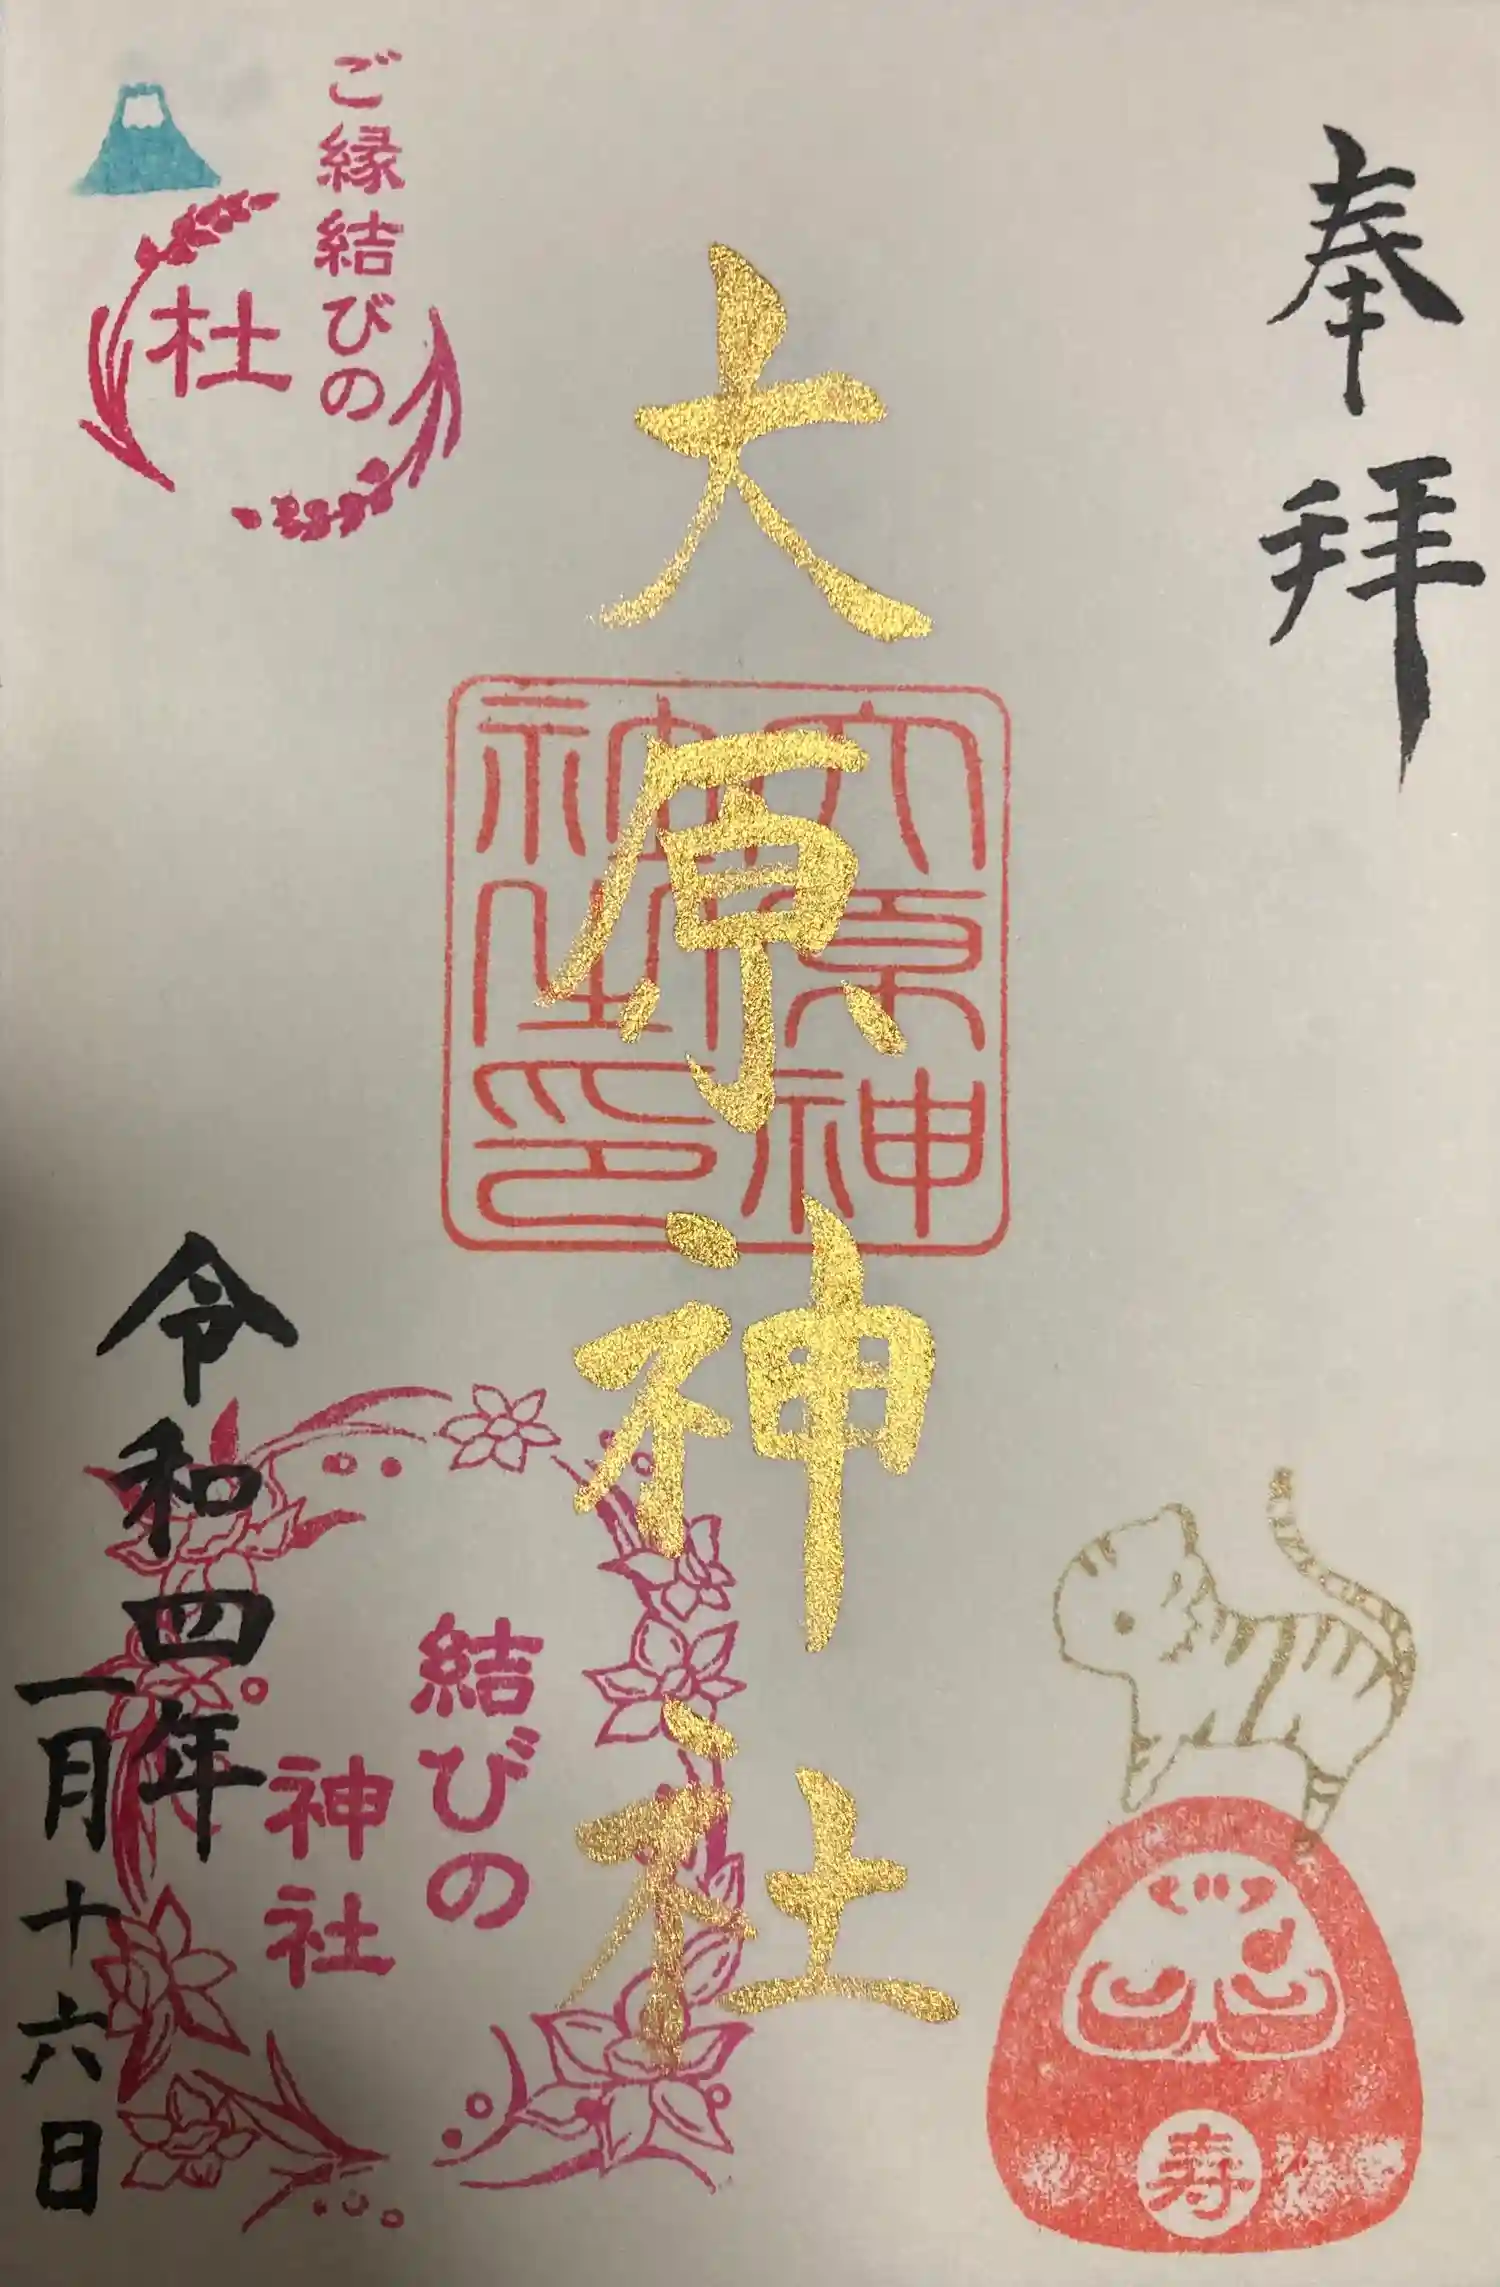 奉拝
大原神社
大原神
社之印
ご縁結びの
杜
結びの
神社
令和四年
一月十六日
寿